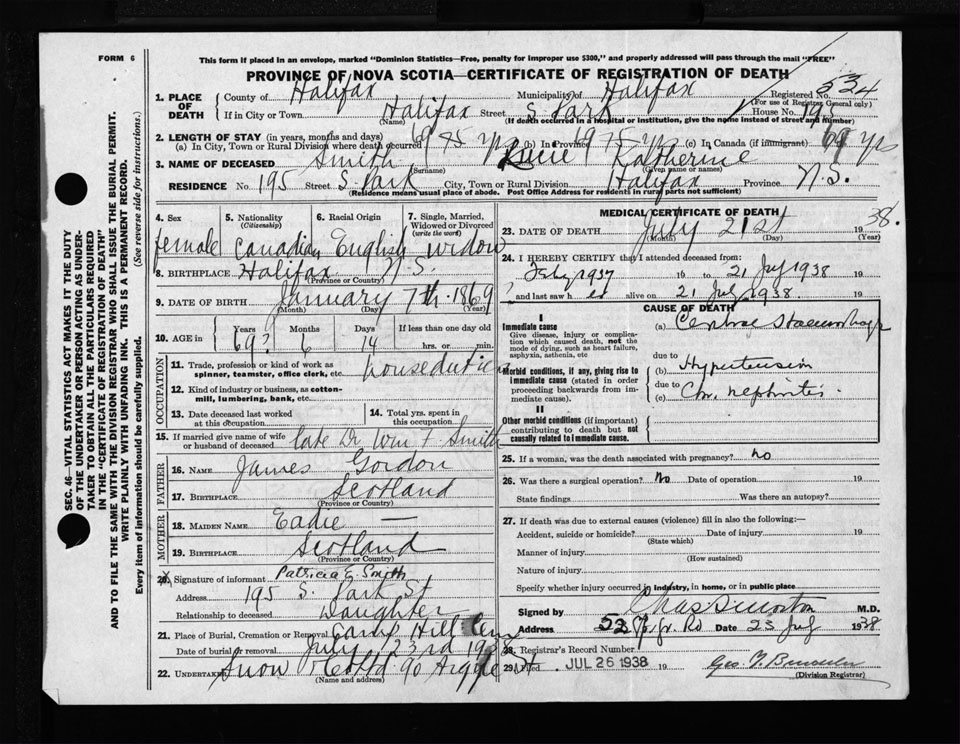 FORM 6
This form if placed in an envelope, marked "Dominion Statistics—Free, penalty for improper use $300," and properly addressed will pass through the mail "FREE"
PROVINCE OF NOVA SCOTIA—CERTIFICATE OF REGISTRATION OF DEATH
Registered No. 534
(For use of Registrar General only)
1. PLACE OF DEATH
County of Halifax Municipality of Halifax
If in City or Town Halifax Street S Park House No. 195
(Name) (If death occurred in a hospital or institution, give the name instead of street and number)
2. LENGTH OF STAY (in years, months and days)
(a) In City, Town or Rural Division where death occurred 69 yrs (b) In Province 69 yrs (c) In Canada (if immigrant) 69 yrs
3. NAME OF DECEASED Smith Katherine
(Surname) (Given name or names)
RESIDENCE No. 195 Street S Park City, Town or Rural Division Halifax Province N.S.
(Residence means usual place of abode. Post Office Address for residents in rural parts not sufficient)
4. Sex female
5. Nationality (Citizenship) Canadian
6. Racial Origin English
7. Single, Married, Widowed or Divorced (write the word) widow
8. BIRTHPLACE Halifax N.S.
(Province or Country)
9. DATE OF BIRTH January 7th 1869
(Month) (Day) (Year)
10. AGE in Years 69? Months 6 Days 14 If less than one day old hrs. or min.
OCCUPATION
11. Trade, profession or kind of work as spinner, teamster, office clerk, etc. house duties
12. Kind of industry or business, as cotton-mill, lumbering, bank, etc.
13. Date deceased last worked at this occupation
14. Total yrs. spent in this occupation
15. If married give name of wife or husband of deceased late Dr Wm F Smith
FATHER
16. NAME James Gordon
17. BIRTHPLACE Scotland
(Province or Country)
MOTHER
18. MAIDEN NAME Eadie —
19. BIRTHPLACE Scotland
(Province or Country)
20. Signature of informant Patricia E Smith
Address 195 S. Park St
Relationship to deceased Daughter
21. Place of Burial, Cremation or Removal Camp Hill Cem
Date of burial or removal July 23rd 19
22. UNDERTAKER Snow & Co Ltd 90 Argyle St
(Name and address)
MEDICAL CERTIFICATE OF DEATH
23. DATE OF DEATH July 21st 1938.
(Month) (Day) (Year)
24. I HEREBY CERTIFY that I attended deceased from:
1937 19 to 21 July 1938
and last saw h er alive on 21 July 1938.
CAUSE OF DEATH
I
Immediate cause
Give disease, injury or complication which caused death, not the mode of dying, such as heart failure, asphyxia, asthenia, etc
(a) Cerebral Haemorrhage
due to
Morbid conditions, if any, giving rise to immediate cause (stated in order proceeding backwards from immediate cause).
(b) Hypertension
due to
(c) Chr. nephritis
II
Other morbid conditions (if important) contributing to death but not causally related to immediate cause.
25. If a woman, was the death associated with pregnancy? No
26. Was there a surgical operation? No Date of operation 19
State findings Was there an autopsy?
27. If death was due to external causes (violence) fill in also the following:—
Accident, suicide or homicide? Date of injury 19
(State which)
Manner of injury
(How sustained)
Nature of injury
Specify whether injury occurred in industry, in home, or in public place
Signed by M.D.
Address Date 23 July 1938
28. Registrar's Record Number
29. Filed JUL 26 1938
(Division Registrar)
SEC. 46—VITAL STATISTICS ACT MAKES IT THE DUTY
OF THE UNDERTAKER OR PERSON ACTING AS UNDER-
TAKER TO OBTAIN ALL THE PARTICULARS REQUIRED
IN THE "CERTIFICATE OF REGISTRATION OF DEATH"
AND TO FILE THE SAME WITH THE DIVISION REGISTRAR WHO SHALL ISSUE THE BURIAL PERMIT.
WRITE PLAINLY WITH UNFADING INK. THIS IS A PERMANENT RECORD.
Every item of information should be carefully supplied. (See reverse side for instructions.)